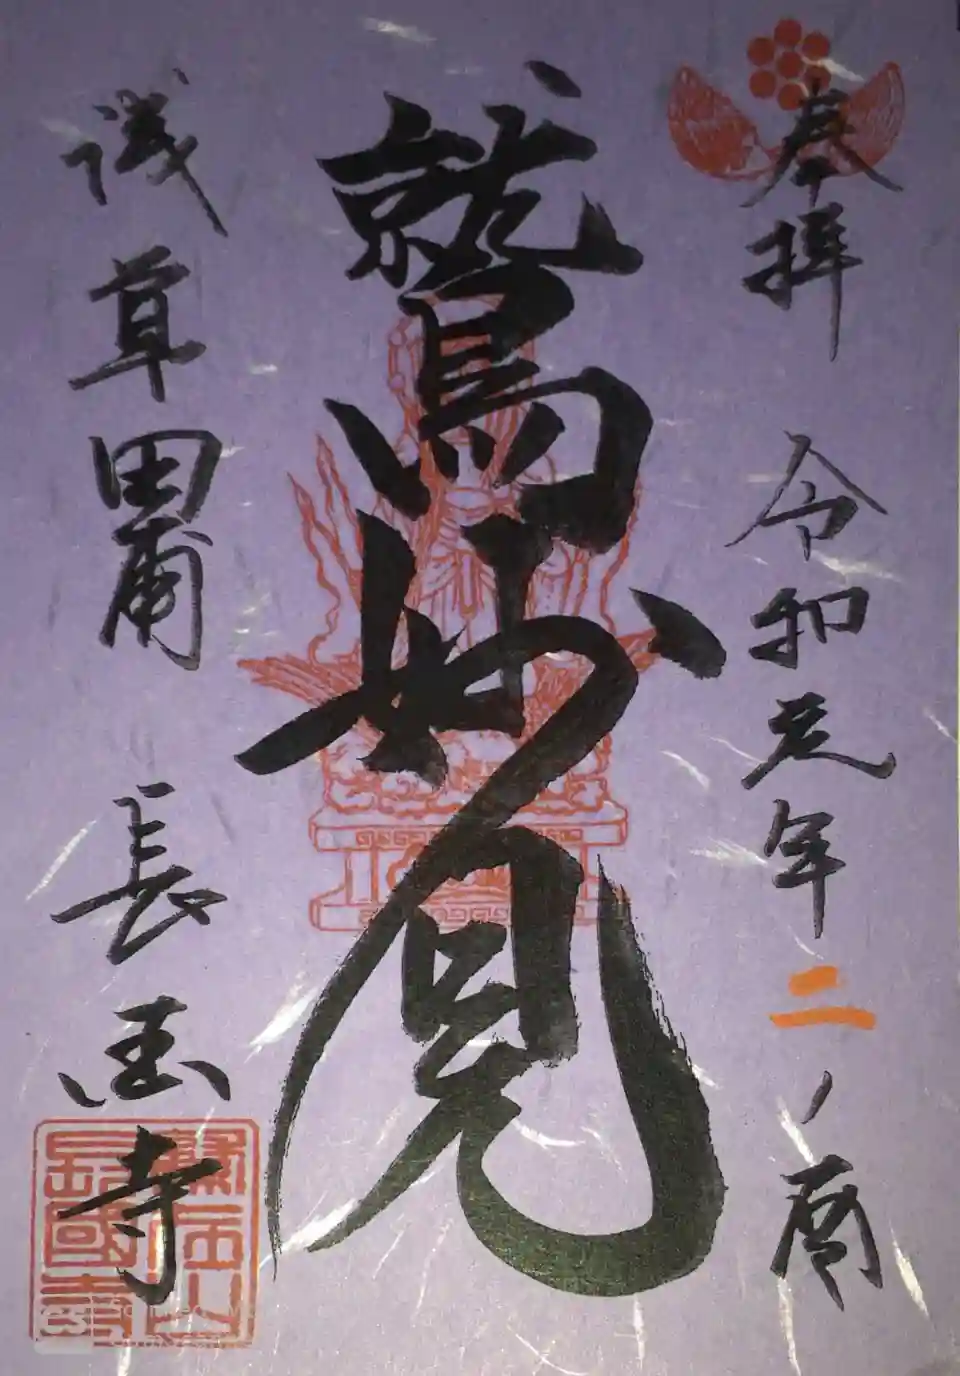 奉拝 令和元年二ノ酉
鷲妙見
浅草田圃 長國寺
鷲在山
長國寺